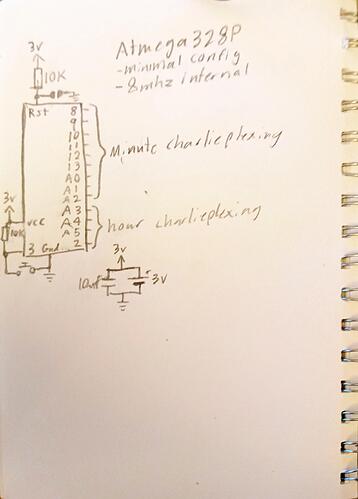 Atmega328P
-minimal config
-8mhz internal
3v
10K
Rst
8
9
10
11
12
13
A0
A1
A2
A3
A4
A5
2
Minute charlieplexing
hour charlieplexing
3v
VCC
10K
3 Gnd
3v
10uf
3v